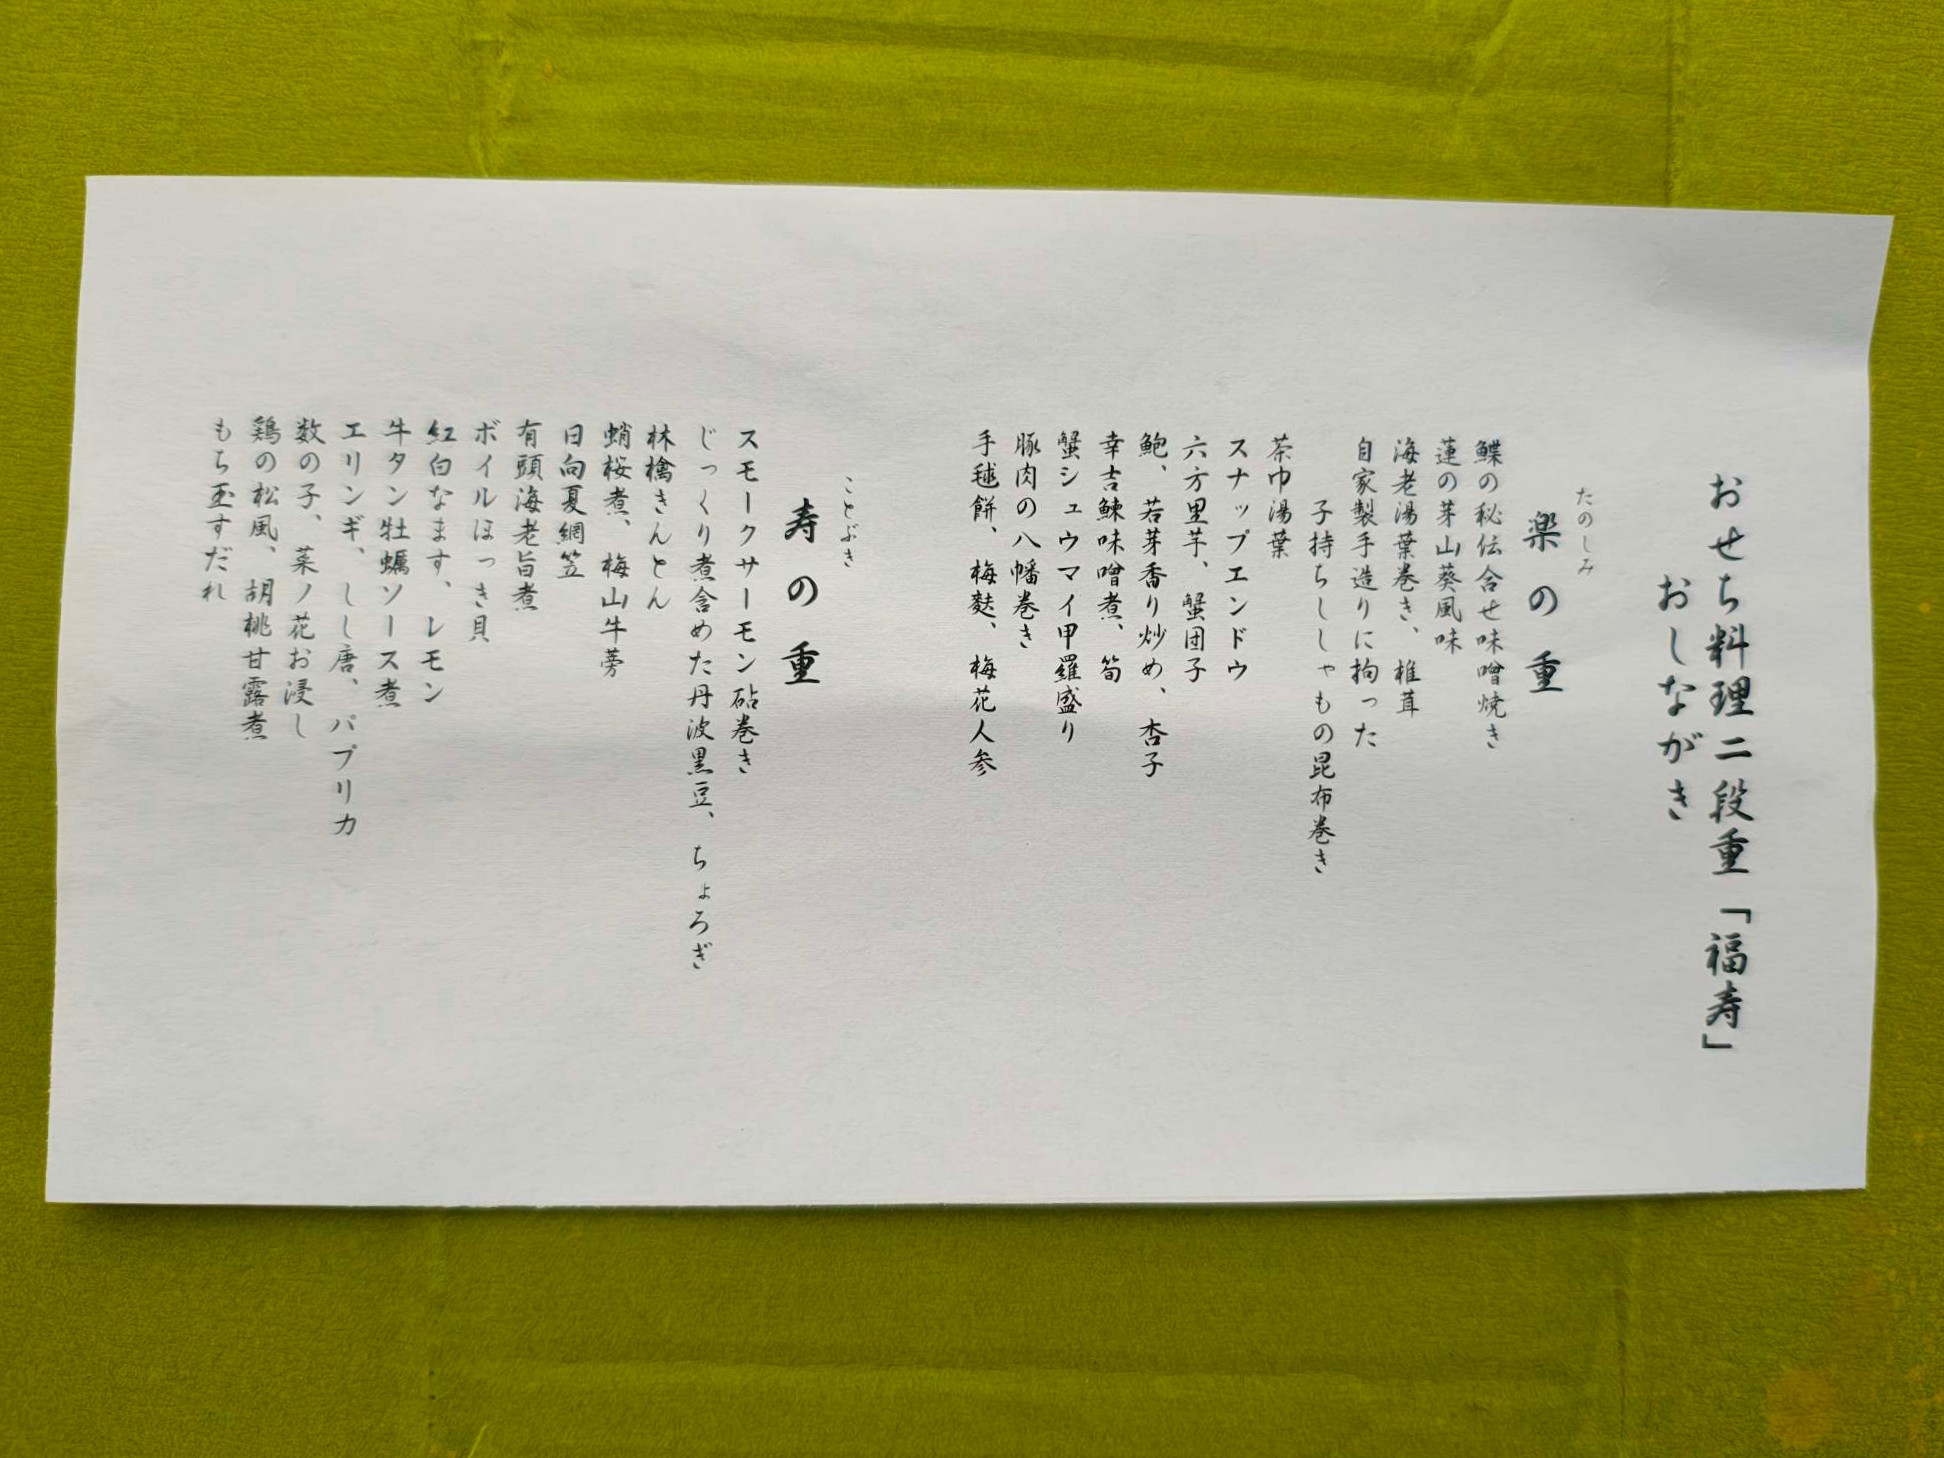 おせち料理二段重「福寿」
おしながき
たのしみ
楽の重
鰈の秘伝合せ味噌焼き
蓮の芽山葵風味
海老湯葉巻き、椎茸
自家製手造りに拘った
子持ちししゃもの昆布巻き
茶巾湯葉
スナップエンドウ
六方里芋、蟹団子
鮑、若芽香り炒め、杏子
幸吉鰊味噌煮、筍
蟹シュウマイ甲羅盛り
豚肉の八幡巻き
手毬餅、梅麩、梅花人参
ことぶき
寿の重
スモークサーモン砧巻き
じっくり煮含めた丹波黒豆、ちょろぎ
林檎きんとん
蛸桜煮、梅山牛蒡
日向夏網笠
有頭海老旨煮
ボイルほっき貝
紅白なます、レモン
牛タン牡蠣ソース煮
エリンギ、しし唐、パプリカ
数の子、菜ノ花お浸し
鶏の松風、胡桃甘露煮
もち玉すだれ